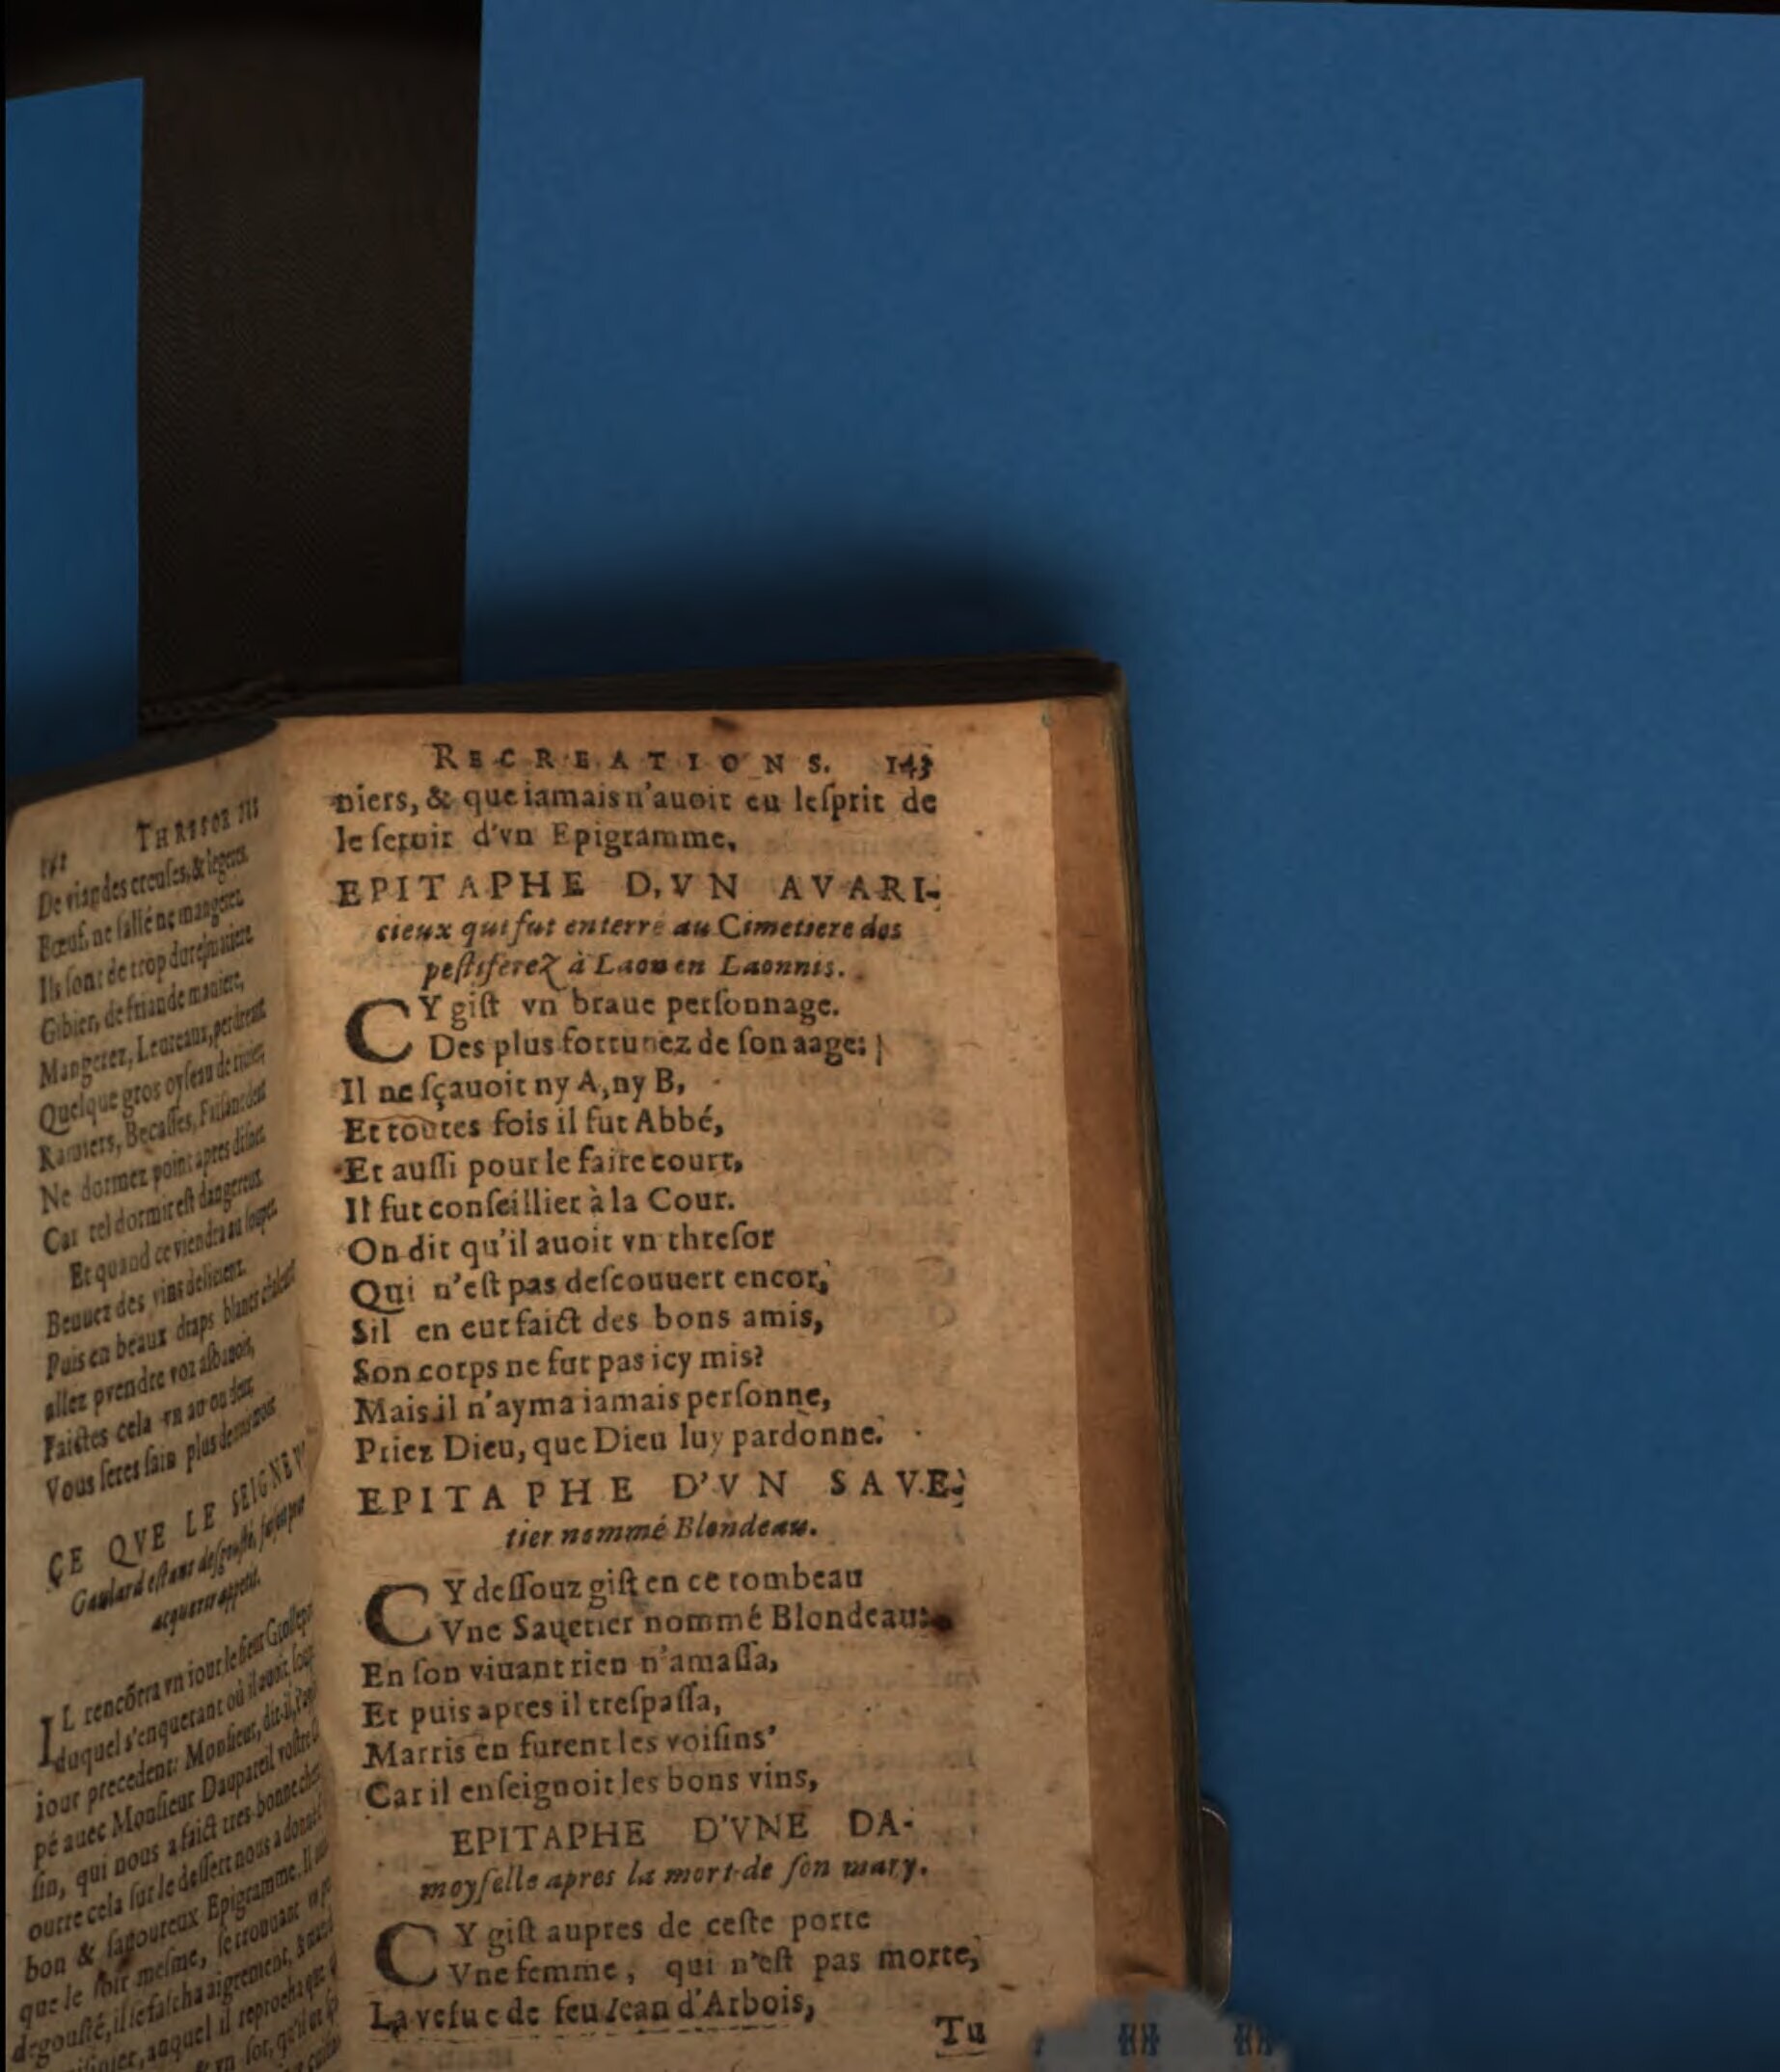 142 THRESOR
De viandes creuses, & legeres.
Bœuf, ne sallé ne mangerez
Ils sont de trop dure matiere
Gibier, de friande maniere,
Mangerez, Leureaux, perdreaux
Quelque gros oyseau de
Ramiers, Becasses,
Ne dormez point apres disner.
Car tel dormir est dangereux
Et quand ce viendra au souper
Beuuez des vins
Puis en beaux draps blancs
allez prendre voz
Faictes cela vn an ou deux
Vous seres sain plus
CE QVE LE SEIGNEV
Gaulard estant desgousté,
acquerir appetit.
IL rencōtra vn iour le sieur
duquel s'enquerant où il auoit
iour precedent: Monsieur, dit-il,
pé auec Monsieur Daupareil vostre
sin, qui nous a faict tres-bonne
outre cela sur le dessert nous a donné
bon & sauoureux Epigramme. Il
que le soir mesme, se trouuant
degousté, il se fascha aigrement,
auquel il reprocha que
vn sot, qu'il
RECREATIONS. 143
niers, & que iamais n'auoit eu lesprit de
le seruir d'vn Epigramme.
EPITAPHE D,VN AVARI-
cieux qui fut enterré au Cimetiere des
pestiferez à Laon en Laonnis.
CY gist vn braue personnage.
Des plus fortunez de son aage:
Il ne sçauoit ny A, ny B,
Et toutes fois il fut Abbé,
Et aussi pour le faire court,
Il fut conseillier à la Cour.
On dit qu'il auoit vn thresor
Qui n'est pas descouuert encor,
Sil en eut faict des bons amis,
Son corps ne fut pas icy mis?
Mais il n'ayma iamais personne,
Priez Dieu, que Dieu luy pardonne.
EPITAPHE D'VN SAVE-
tier nommé Blondeau.
CY dessouz gist en ce tombeau
Vne Sauetier nommé Blondeau:
En son viuant rien n'amassa,
Et puis apres il trespassa,
Marris en furent les voisins'
Car il enseignoit les bons vins,
EPITAPHE D'VNE DA-
moyselle apres la mort de son mary.
CY gist aupres de ceste porte
Vne femme, qui n'est pas morte,
La vefue de feu Iean d'Arbois,
Tu